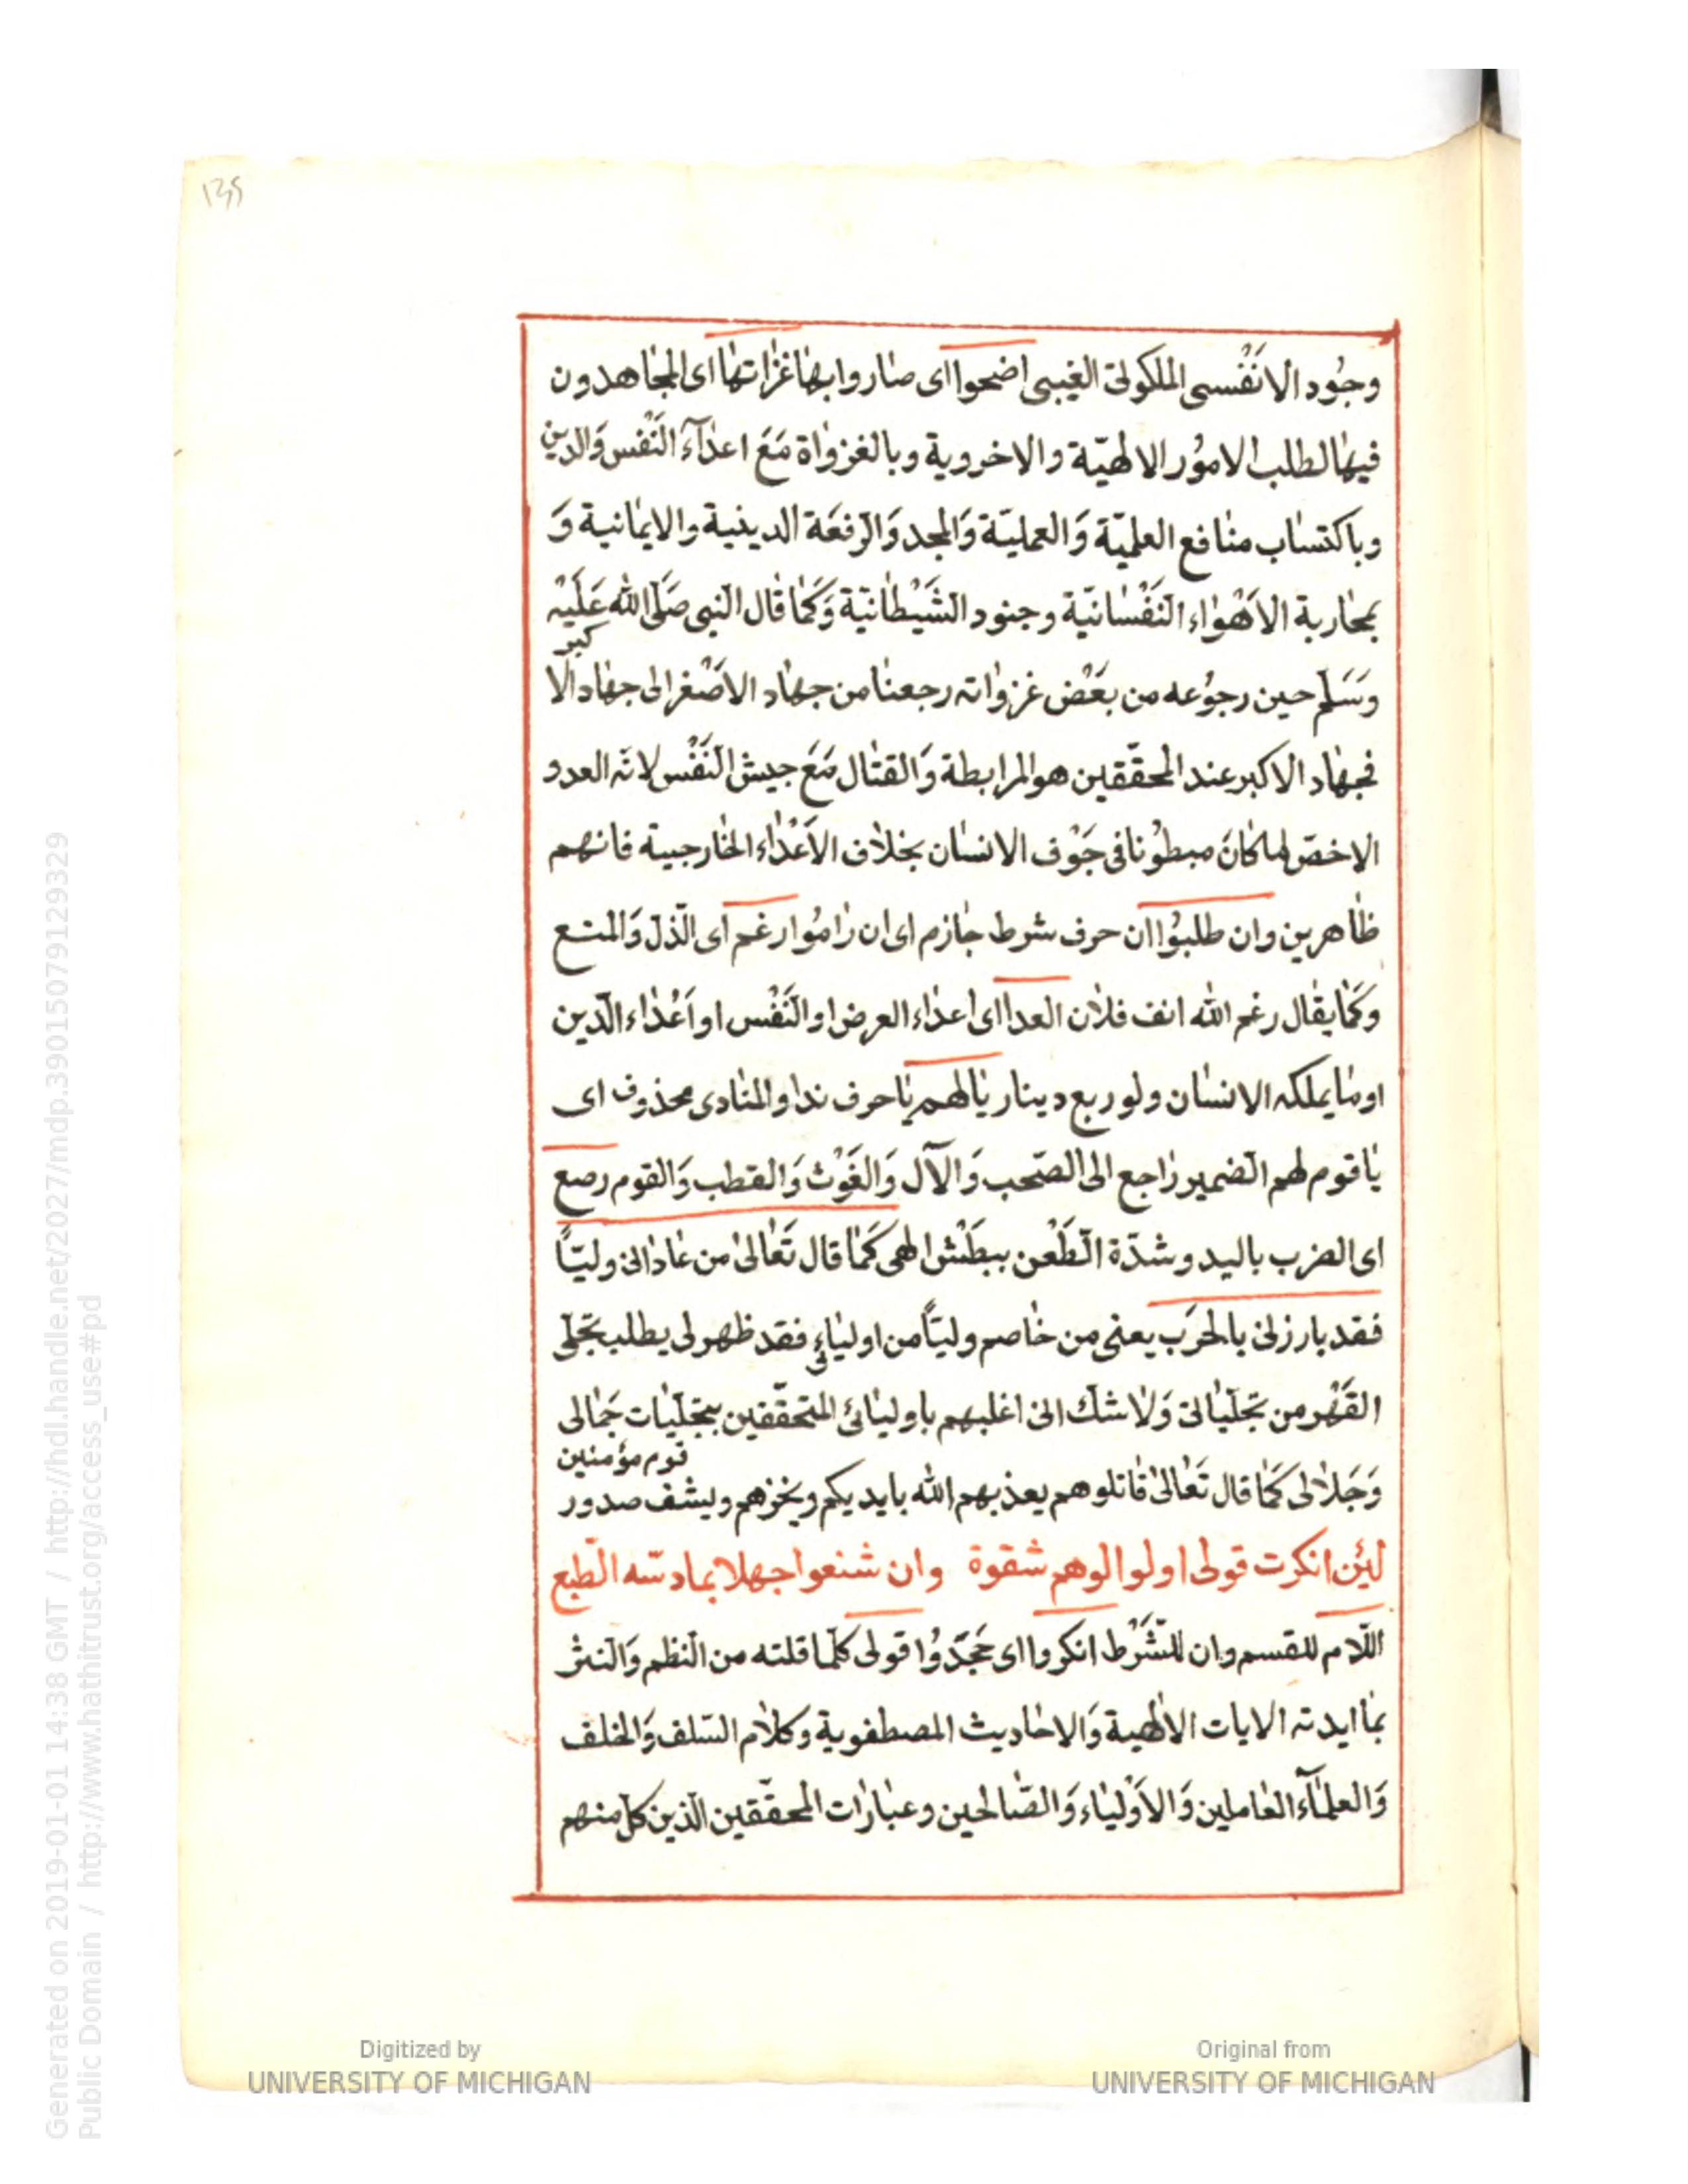 135
وجُود الانْفُسى الملكوتى الغيبى اضحوا اى صاروا بها غزاتها اى المجاهدون
فيها لطلب الامُور الالهيّة والاخروية وبالغزواة مَعَ اعدآء النَفْس وَالدين
وباكتساب منافع العلميّة وَالعمليّة وَالمجد وَالرّفعَة الدينية والايمانية وَ
بمحاربة الاَهْواء النَفْسانيّة وجنود الشَيْطانيّة وَكَما قال النبى صَلّى الله عَلَيْه
وَسَلّم حين رجُوعه من بعَْض غزواته رجعنا من جهاد الاصْغر الى جهاد الاكبر
فجهاد الاكبر عند المحقّقين هو المرابطة وَالقتال مَعَ جيش النَفْس لانّه العدو
الاخصّ لما كانَ مبطوُنا فى جَوْف الانسان بخلاف الاَعْداء الخارجيية فانهم
ظاهرين وان طلبُوا ان حرف شرط جازم اى ان رامُوا رغم اى الذّل وَالمنع
وكَما يقال رغم الله انف فلان العدا اى اعداء العرض او النَفْس او اَعْداء الدّين
او ما يملكه الانسان ولو ربع دينار يا لهم يا حرف ندا والمنادى محذوف اى
يا قوم لهم الضمير راجع الى الصّحب وَالآل وَالغَوْث وَالقطب وَالقوم رصع
اى الضرب باليد وشدّة الطَعْن ببطَشْ الهى كَما قال تَعالى من عادانى وليّاً
فقد بارزنى بالحرَب يعنى من خاصم وليّاً من اوليائى فقد ظهر لى يطلب تجلّى
القَهْر من تجلّياتى وَلا شك انى اغلبهم باوليائى المتحقّقين بتجلّيات جَمالى
وَجَلالى كَما قال تَعالى قاتلوهم يعذبهم الله بايديكم ويخزهم ويشف صدور قوم مؤمنين
لئن انكرت قولى اولوا الوهم شقوة وان شنعوا جهلا بما دسّه الطّبع
اللّام للقسم وان للشَّرْط انكروا اى جَحَدُوا قولى كلّما قلته من النّظم وَالنثر
بما ايدته الايات الالهية وَالاحاديث المصطفوية وكلام السّلف وَالخلف
وَالعلمآء العاملين وَالاَوْلياء وَالصّالحين وعبارات المحقّقين الّذين كل منهم
Digitized by
UNIVERSITY OF MICHIGAN
Original from
UNIVERSITY OF MICHIGAN
Generated on 2019-01-01 14:38 GMT / http://hdl.handle.net/2027/mdp.39015079129329
Public Domain / http://www.hathitrust.org/access_use#pd